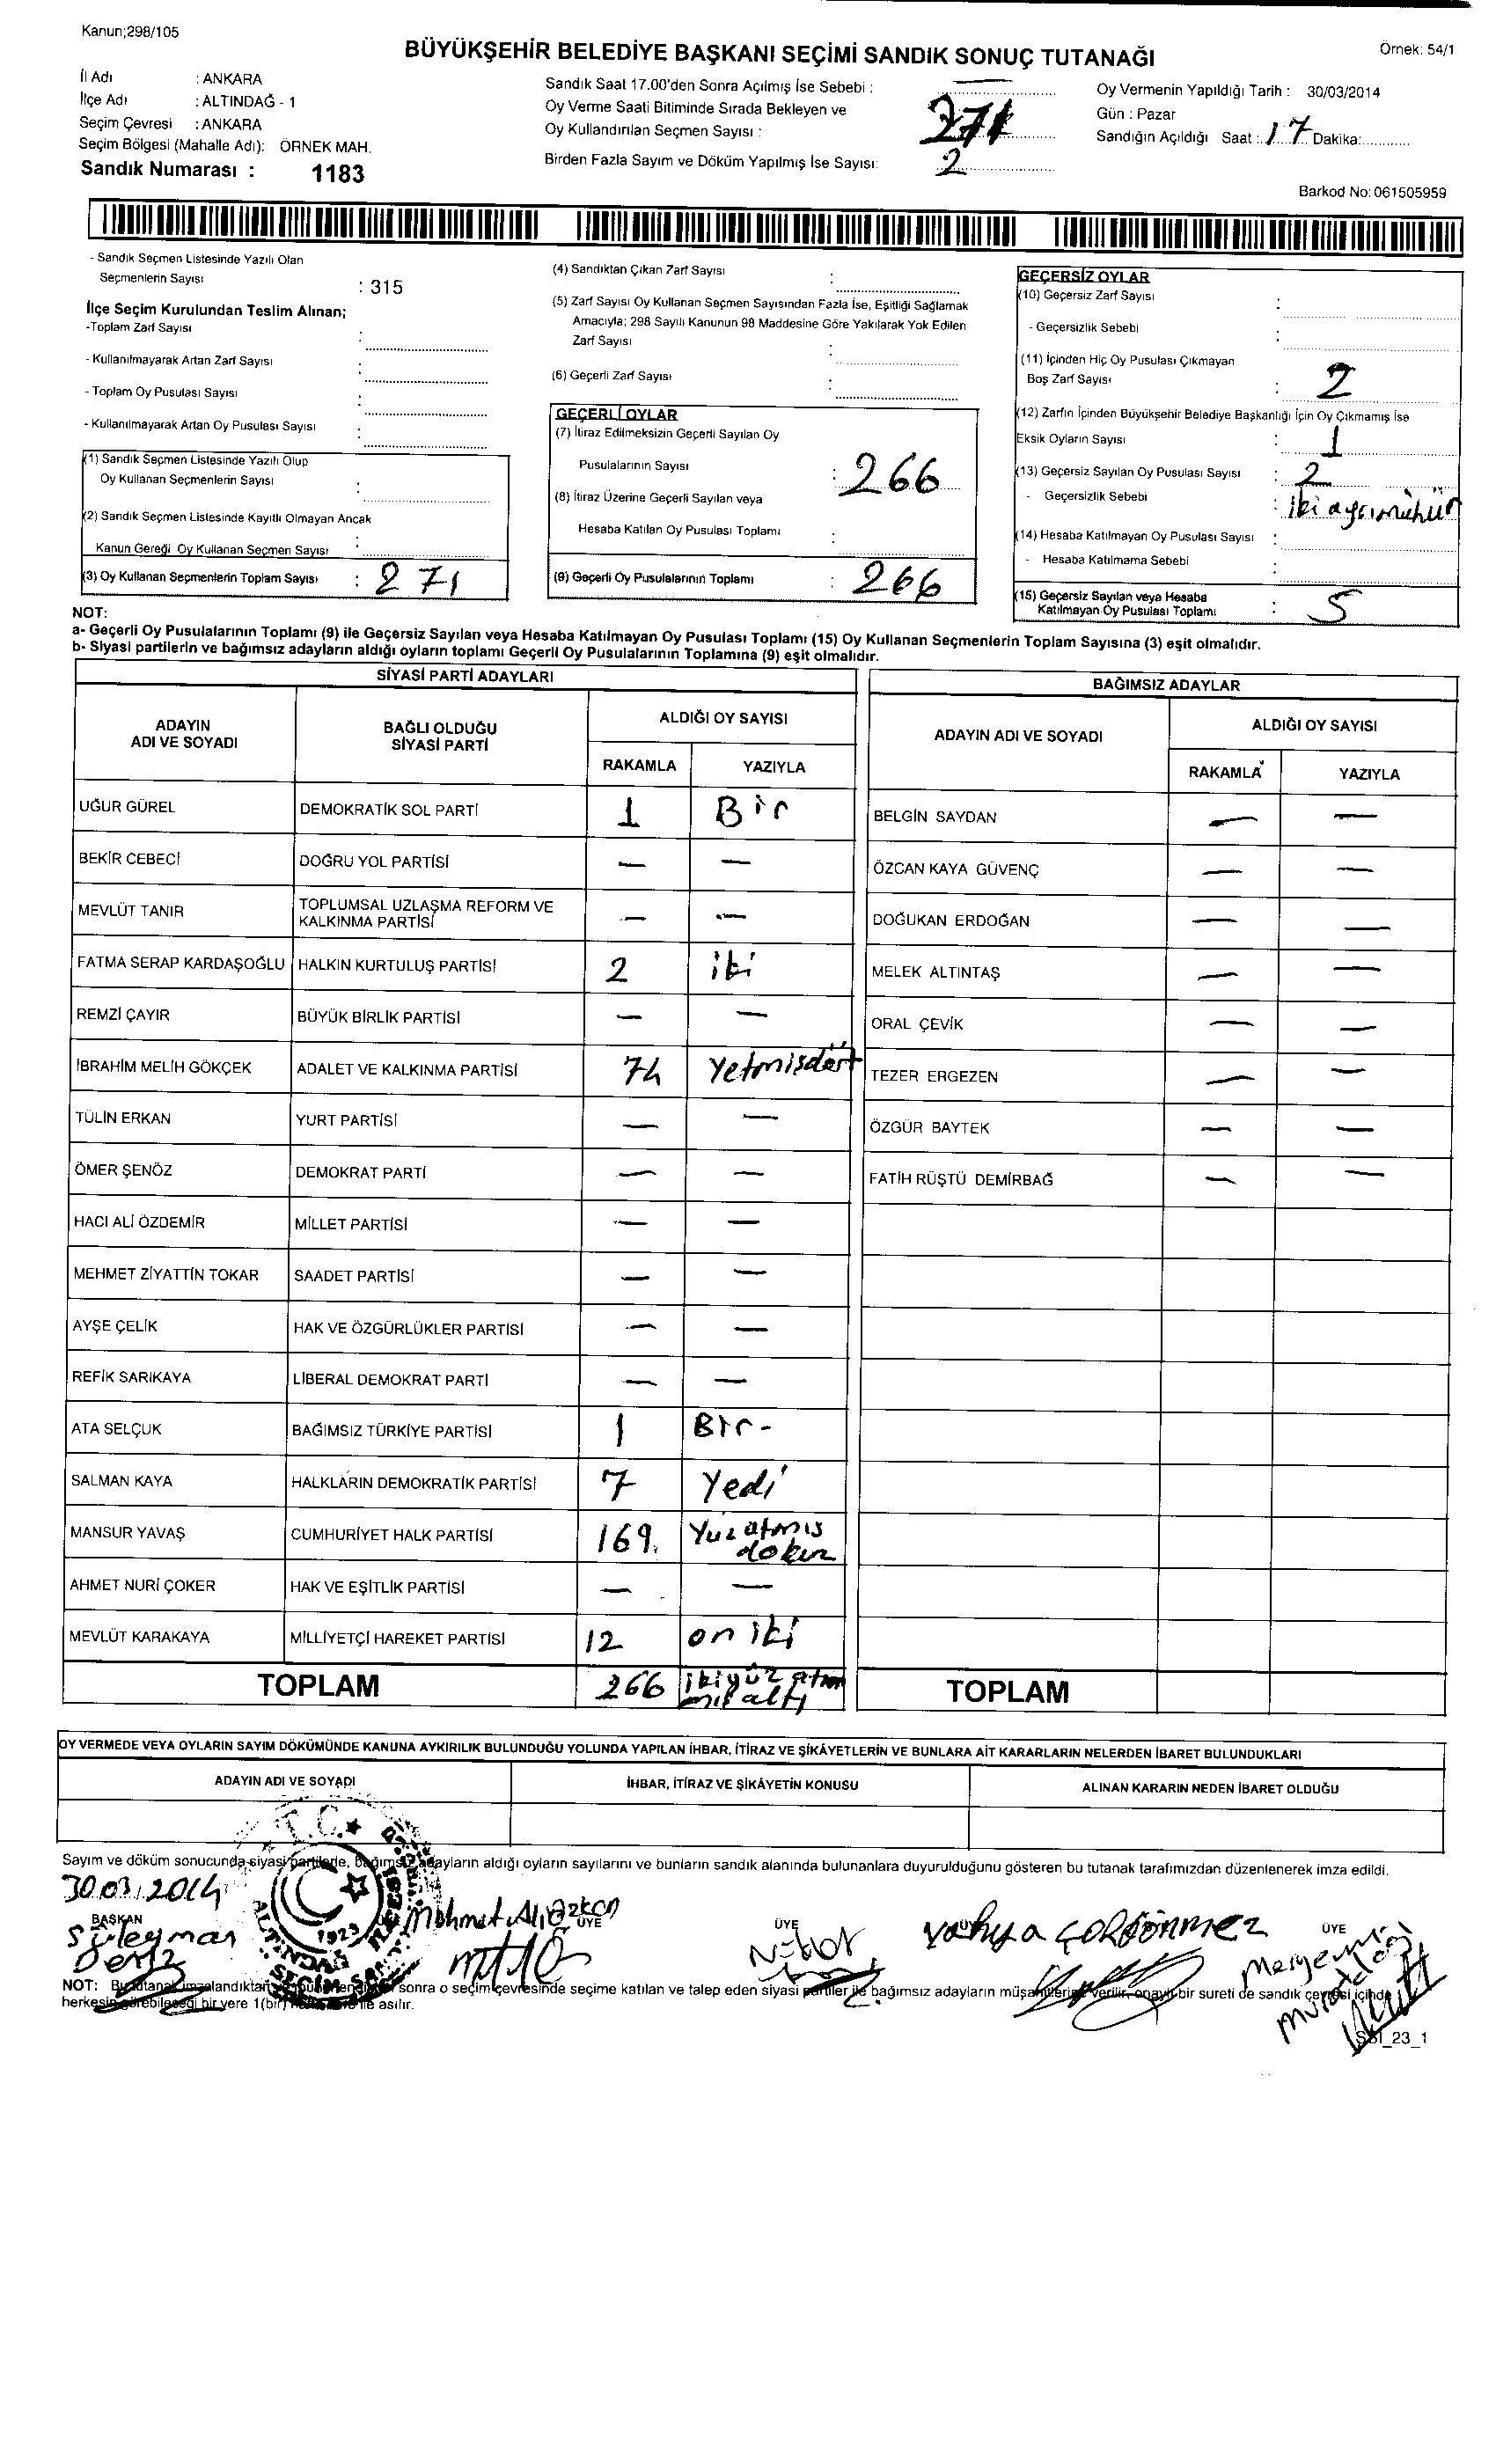 Kanun;298/105
BÜYÜKŞEHİR BELEDİYE BAŞKANI SEÇİMİ SANDIK SONUÇ TUTANAĞI
Örnek: 54/1
İl Adı : ANKARA
İlçe Adı : ALTINDAĞ - 1
Seçim Çevresi : ANKARA
Seçim Bölgesi (Mahalle Adı): ÖRNEK MAH.
Sandık Numarası : 1183
Sandık Saat 17.00'den Sonra Açılmış İse Sebebi :
Oy Verme Saati Bitiminde Sırada Bekleyen ve
Oy Kullandırılan Seçmen Sayısı : 271
Birden Fazla Sayım ve Döküm Yapılmış İse Sayısı: 2
Oy Vermenin Yapıldığı Tarih : 30/03/2014
Gün : Pazar
Sandığın Açıldığı Saat : 17 Dakika:
Barkod No: 061505959
- Sandık Seçmen Listesinde Yazılı Olan
Seçmenlerin Sayısı : 315
İlçe Seçim Kurulundan Teslim Alınan;
-Toplam Zarf Sayısı :
- Kullanılmayarak Artan Zarf Sayısı :
- Toplam Oy Pusulası Sayısı :
- Kullanılmayarak Artan Oy Pusulası Sayısı :
(1) Sandık Seçmen Listesinde Yazılı Olup
Oy Kullanan Seçmenlerin Sayısı :
(2) Sandık Seçmen Listesinde Kayıtlı Olmayan Ancak
Kanun Gereği Oy Kullanan Seçmen Sayısı :
(3) Oy Kullanan Seçmenlerin Toplam Sayısı : 271
(4) Sandıktan Çıkan Zarf Sayısı :
(5) Zarf Sayısı Oy Kullanan Seçmen Sayısından Fazla İse, Eşitliği Sağlamak
Amacıyla; 298 Sayılı Kanunun 98 Maddesine Göre Yakılarak Yok Edilen
Zarf Sayısı :
(6) Geçerli Zarf Sayısı :
GEÇERLİ OYLAR
(7) İtiraz Edilmeksizin Geçerli Sayılan Oy
Pusulalarının Sayısı : 266
(8) İtiraz Üzerine Geçerli Sayılan veya
Hesaba Katılan Oy Pusulası Toplamı :
(9) Geçerli Oy Pusulalarının Toplamı : 266
GEÇERSİZ OYLAR
(10) Geçersiz Zarf Sayısı :
- Geçersizlik Sebebi :
(11) İçinden Hiç Oy Pusulası Çıkmayan
Boş Zarf Sayısı : 2
(12) Zarfın İçinden Büyükşehir Belediye Başkanlığı İçin Oy Çıkmamış İse
Eksik Oyların Sayısı : 1
(13) Geçersiz Sayılan Oy Pusulası Sayısı : 2
- Geçersizlik Sebebi : iki ayrı mühür
(14) Hesaba Katılmayan Oy Pusulası Sayısı :
- Hesaba Katılmama Sebebi :
(15) Geçersiz Sayılan veya Hesaba
Katılmayan Oy Pusulası Toplamı : 5
NOT:
a- Geçerli Oy Pusulalarının Toplamı (9) ile Geçersiz Sayılan veya Hesaba Katılmayan Oy Pusulası Toplamı (15) Oy Kullanan Seçmenlerin Toplam Sayısına (3) eşit olmalıdır.
b- Siyasi partilerin ve bağımsız adayların aldığı oyların toplamı Geçerli Oy Pusulalarının Toplamına (9) eşit olmalıdır.
SİYASİ PARTİ ADAYLARI
ADAYIN ADI VE SOYADI BAĞLI OLDUĞU SİYASİ PARTİ ALDIĞI OY SAYISI
RAKAMLA YAZIYLA
UĞUR GÜREL DEMOKRATİK SOL PARTİ 1 Bir
BEKİR CEBECİ DOĞRU YOL PARTİSİ — —
MEVLÜT TANIR TOPLUMSAL UZLAŞMA REFORM VE KALKINMA PARTİSİ — —
FATMA SERAP KARDAŞOĞLU HALKIN KURTULUŞ PARTİSİ 2 iki
REMZİ ÇAYIR BÜYÜK BİRLİK PARTİSİ — —
İBRAHİM MELİH GÖKÇEK ADALET VE KALKINMA PARTİSİ 74 Yetmisdört
TÜLİN ERKAN YURT PARTİSİ — —
ÖMER ŞENÖZ DEMOKRAT PARTİ — —
HACI ALİ ÖZDEMİR MİLLET PARTİSİ — —
MEHMET ZİYATTİN TOKAR SAADET PARTİSİ — —
AYŞE ÇELİK HAK VE ÖZGÜRLÜKLER PARTİSİ — —
REFİK SARIKAYA LİBERAL DEMOKRAT PARTİ — —
ATA SELÇUK BAĞIMSIZ TÜRKİYE PARTİSİ 1 Bir-
SALMAN KAYA HALKLARIN DEMOKRATİK PARTİSİ 7 Yedi
MANSUR YAVAŞ CUMHURİYET HALK PARTİSİ 169. Yüzatmıs dokuz
AHMET NURİ ÇOKER HAK VE EŞİTLİK PARTİSİ — —
MEVLÜT KARAKAYA MİLLİYETÇİ HAREKET PARTİSİ 12 on iki
TOPLAM 266 ikiyüz atmışaltı
BAĞIMSIZ ADAYLAR
ADAYIN ADI VE SOYADI ALDIĞI OY SAYISI
RAKAMLA YAZIYLA
BELGİN SAYDAN — —
ÖZCAN KAYA GÜVENÇ — —
DOĞUKAN ERDOĞAN — —
MELEK ALTINTAŞ — —
ORAL ÇEVİK — —
TEZER ERGEZEN — —
ÖZGÜR BAYTEK — —
FATİH RÜŞTÜ DEMİRBAĞ — —
TOPLAM
OY VERMEDE VEYA OYLARIN SAYIM DÖKÜMÜNDE KANUNA AYKIRILIK BULUNDUĞU YOLUNDA YAPILAN İHBAR, İTİRAZ VE ŞİKÂYETLERİN VE BUNLARA AİT KARARLARIN NELERDEN İBARET BULUNDUKLARI
ADAYIN ADI VE SOYADI İHBAR, İTİRAZ VE ŞİKÂYETİN KONUSU ALINAN KARARIN NEDEN İBARET OLDUĞU
T.C.
Sayım ve döküm sonucunda siyasi partilerle, bağımsız adayların aldığı oyların sayılarını ve bunların sandık alanında bulunanlara duyurulduğunu gösteren bu tutanak tarafımızdan düzenlenerek imza edildi.
30.03.2014
BAŞKAN ÜYE ÜYE ÜYE
Süleyman Deniz
Mehmet Ali Özkan
Yahya Çoldönmez
Meryem
1923
NOT: Bu tutanak imzalandıktan sonra o seçim çevresinde seçime katılan ve talep eden siyasi partiler ile bağımsız adayların müşahitlerine verilir, onaylı bir sureti de sandık çevresi içinde
herkesin görebileceği bir yere 1(bir) ile asılır.
SSI_23_1